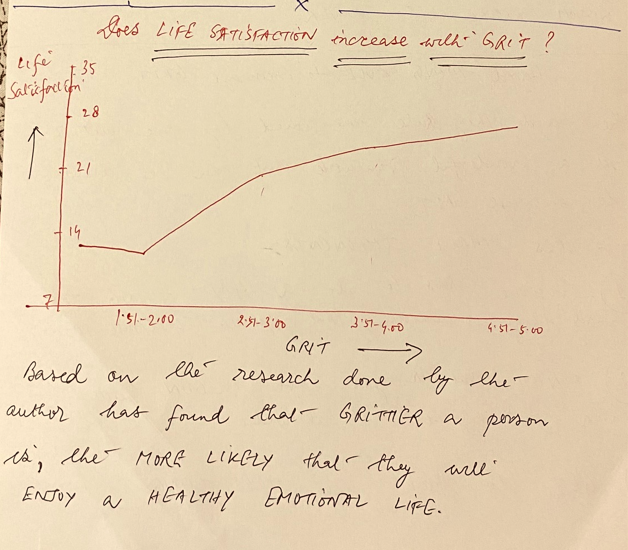 Does LIFE SATISFACTION increase with GRIT ?
Life
Satisfaction
35
28
21
14
7
1.51-2.00 2.51-3.00 3.51-4.00 4.51-5.00
GRIT
Based on the research done by the
author has found that GRITTIER a person
is, the MORE LIKELY that they will
ENJOY a HEALTHY EMOTIONAL LIFE.